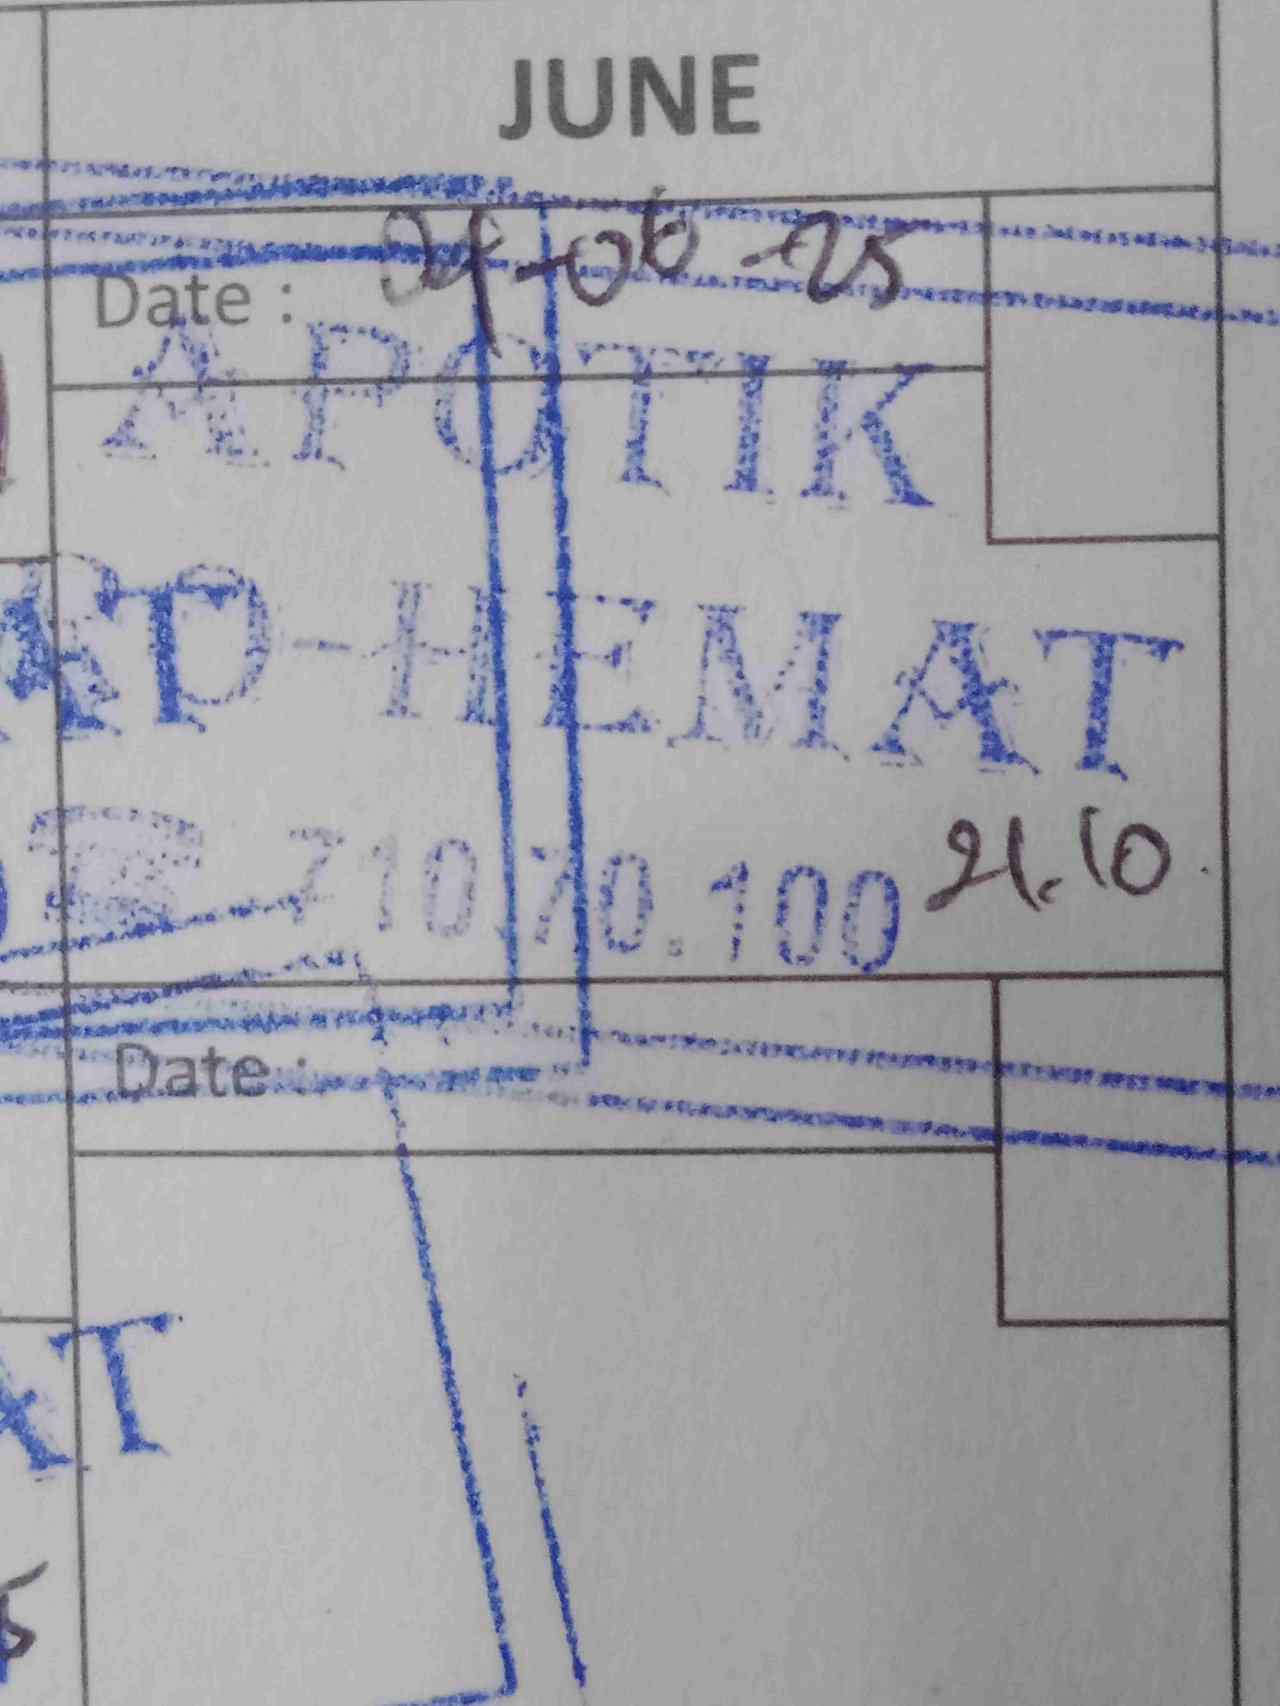 JUNE
Date : 04-06-25
APOTIK
-HEMAT
710.70.100 21.10
Date :
AT